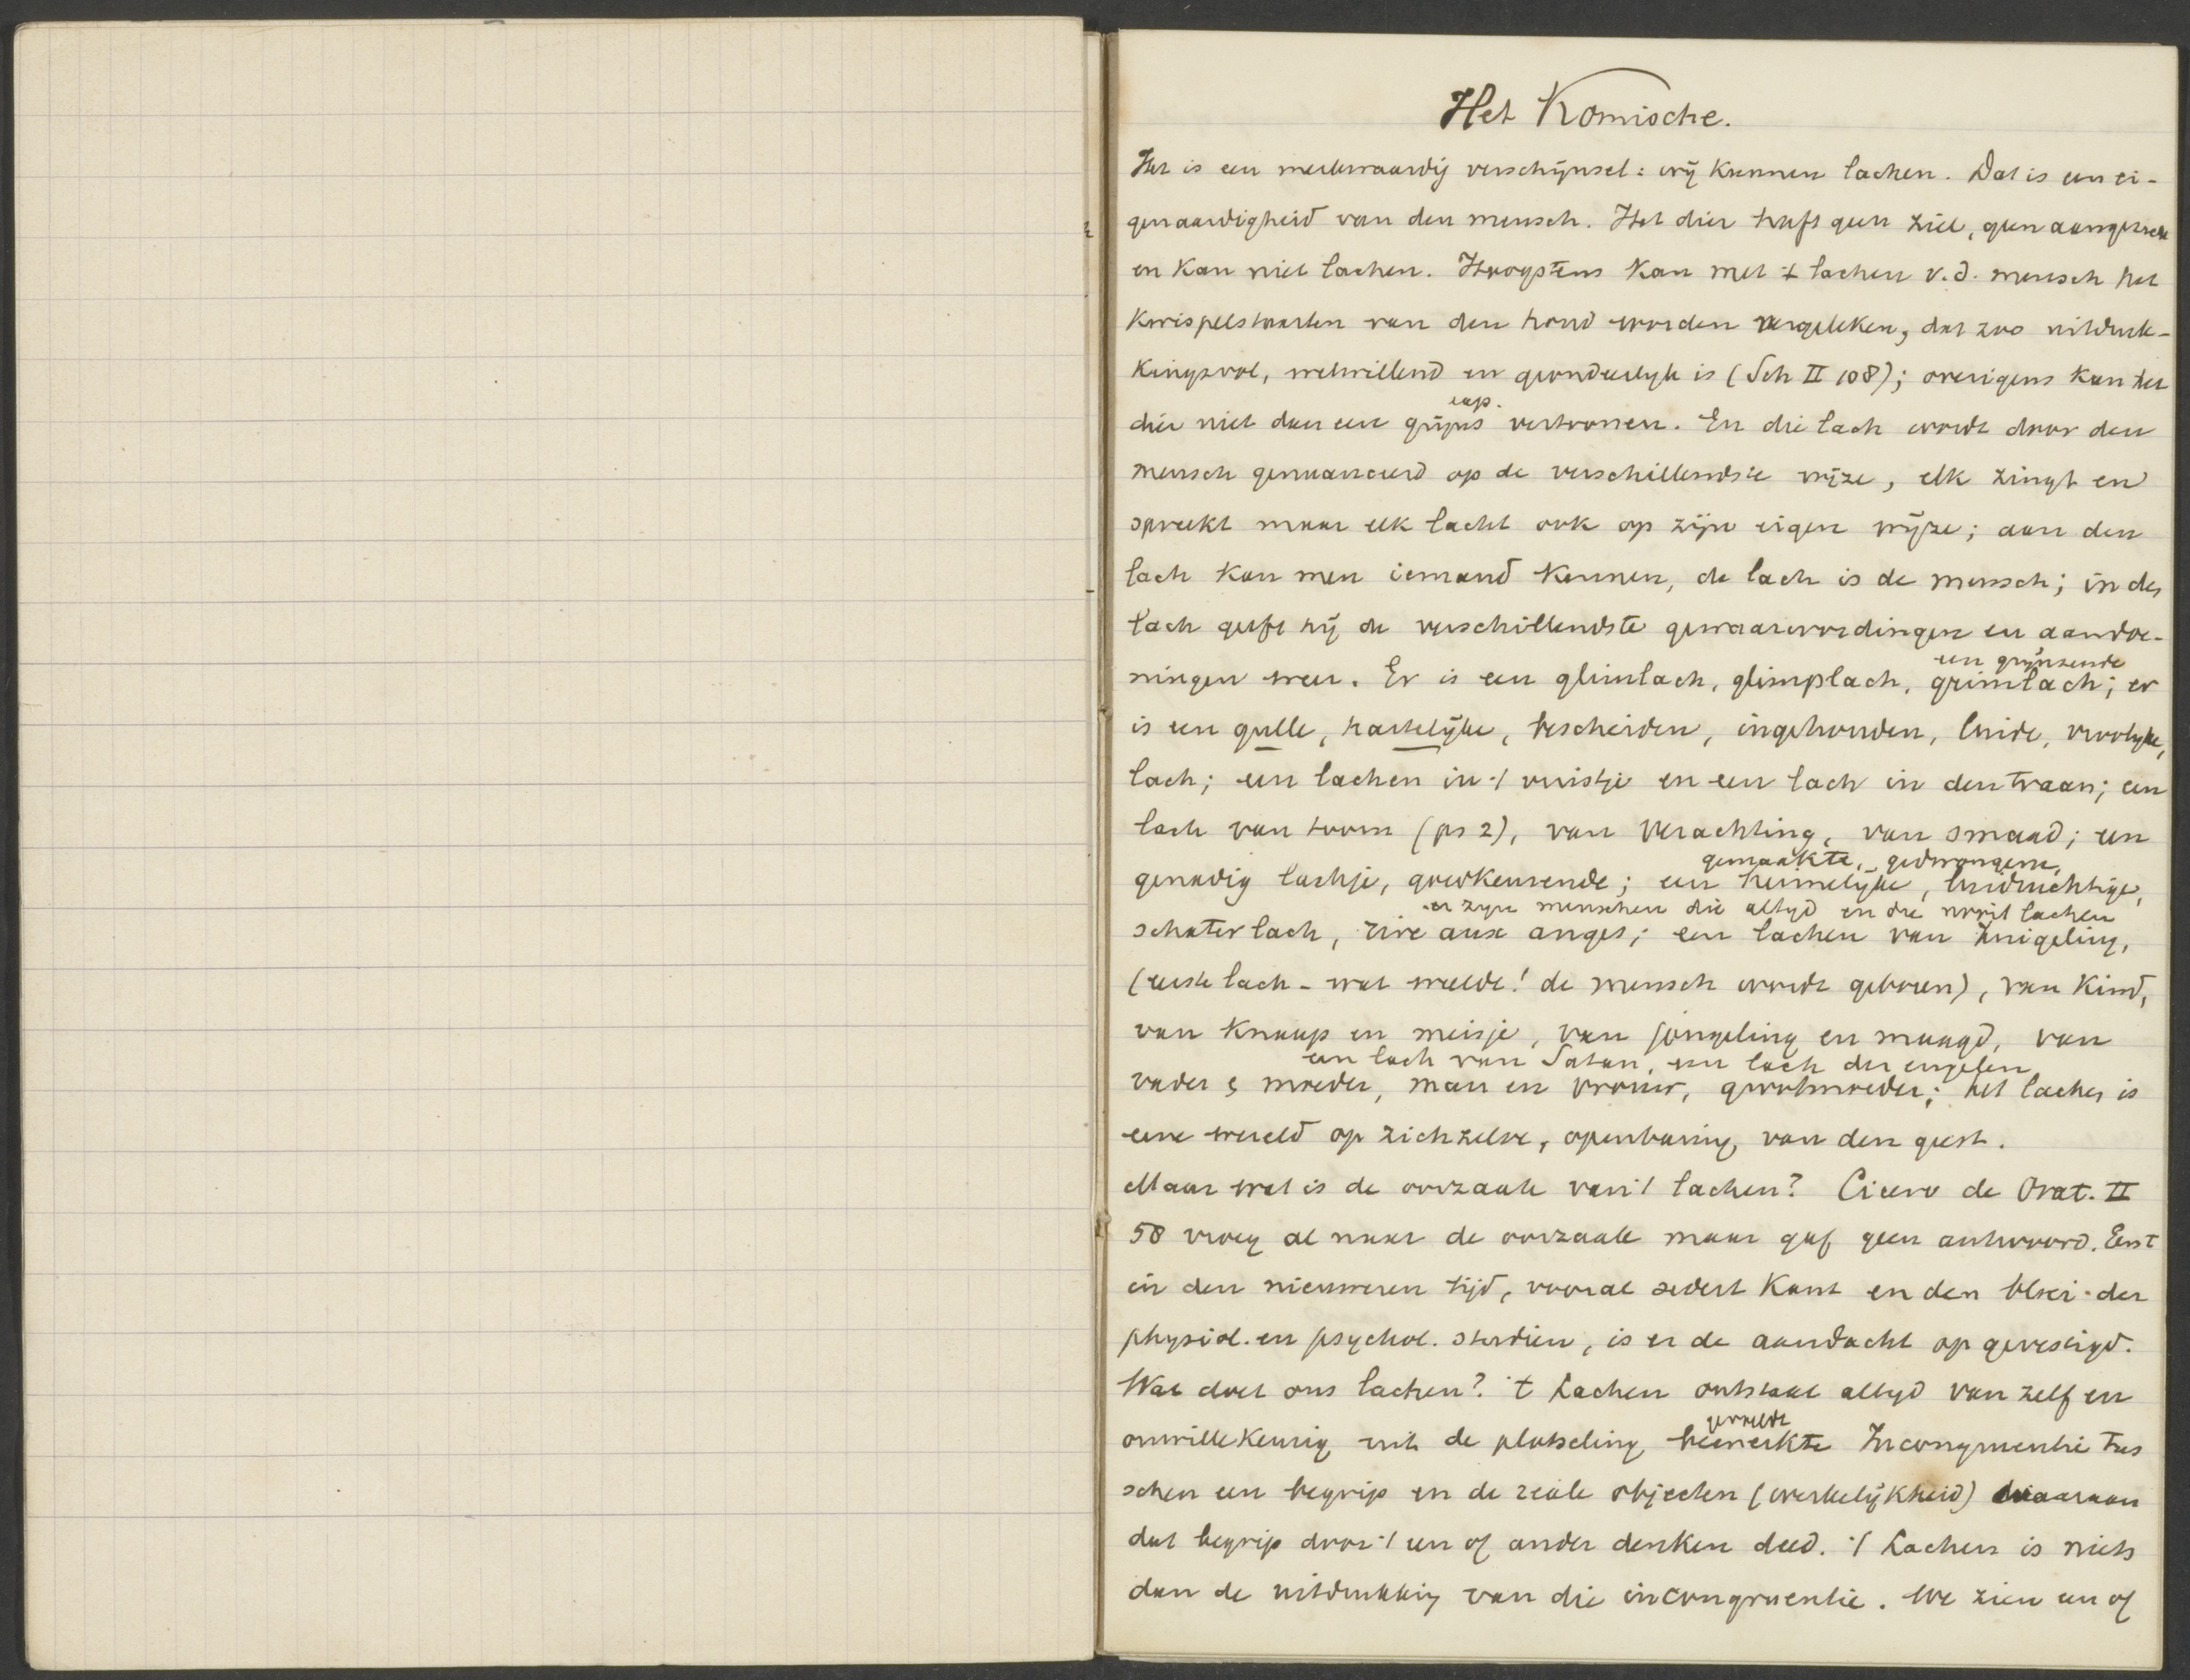 Het Komische.
Het is een merkwaardig verschijnsel: wij kunnen lachen. Dat is een ei-
genaardigheid van den mensch. Het dier heeft geen ziel, geen aangezicht
en kan niet lachen. Hoogstens kan met 't lachen v.d. mensch het
kwispelstaarten van den hond worden vergeleken, dat zoo uitdruk-
kingsvol, welwillend en grondeerlyk is (Sch II 108); overigens kan het
dier niet dan een grijns vertoonen. En die lach wordt door den
mensch genuanceerd op de verschillendste wijze, elk zingt en
spreekt maar elk lacht ook op zijn eigen wijze; aan den
lach kan men iemand kennen, de lach is de mensch; in den
lach geeft hij de verschillendste gewaarwordingen en aandoe-
een grijnzende
ningen weer. Er is een glimlach, glimplach, grimlach; er
is een gulle, hartelijke, bescheiden, ingehouden, luide, vroolyke,
lach; een lachen in 't vuistje en een lach in den traan; een
lach van toorn (ps 2), van verachting, van smaad; een
gemaakte, gedwongene,
genadig lachje, goedkeurende; een heimelijke, luidruchtige,
er zyn menschen die altyd en die nooit lachen
schaterlach, rire aux anges; een lachen van zuigeling,
(eerste lach - wat weelde! de mensch wordt geboren), van kind,
van knaap en meisje, van jongeling en maagd, van
een lach van Satan, een lach der engelen
vader & moeder, man en vrouw, grootmoeder; het lachen is
eene wereld op zichzelve, openbaring van den geest.
Maar wat is de oorzaak van 't lachen? Cicero de Orat. II
58 vroeg al naar de oorzaak maar gaf geen antwoord. Eerst
in den nieuweren tijd, vooral sedert Kant en den bloei der
physiol. en psychol. studien, is er de aandacht op gevestigd.
Wat doet ons lachen? 't Lachen ontstaat altyd van zelf en
gevoelde
onwillekeurig uit de plotseling bemerkte Incongruentie tus
schen een begrip en de reële objecten (werkelijkheid) waaraan
dat begrip door 't een of ander denken deed. 't Lachen is niets
dan de uitdrukking van die incongruentie. We zien een of